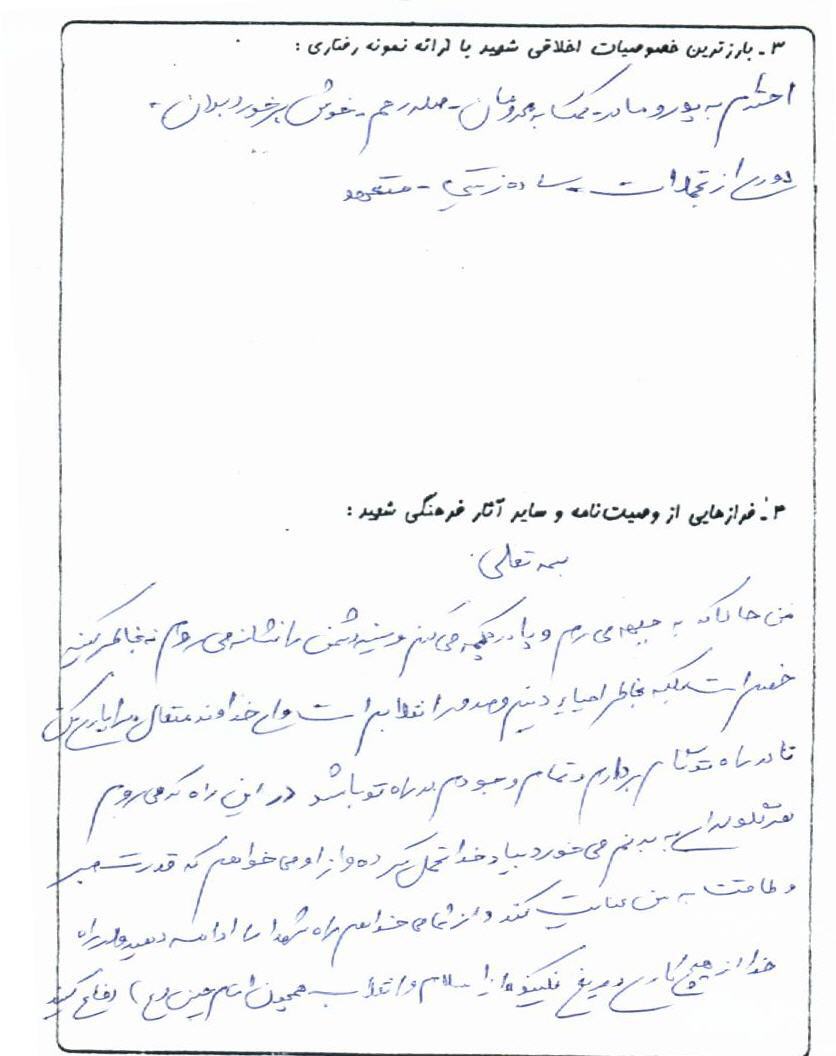 ۳ـ بارزترین خصوصیات اخلاقی شهید با ارائه نمونه رفتاری :
احترام به پدر و مادر - کمک به محرومان - صله رحم - خوش برخورد بودن -
دوری از تجملات - ساده زیستی - متعهد
۴ـ فرازهایی از وصیت‌نامه و سایر آثار فرهنگی شهید :
بسمه تعالی
من حالا که به جبهه می روم و پا در چکمه می کنم و سینه دشمن را نشانه می روم نه بخاطر کینه
است بلکه بخاطر احیاء دینم و صدور انقلابم است و ای خداوند متعال مرا یاری کن
تا در راه تو گام بردارم و تمام وجودم در راه تو باشد در این راه که می روم
هر گلوله‌ای به بدنم می خورد بیاد خدا تحمل کرده و از او می خواهم که قدرت صبر
و طاقت به من عنایت کند و از شما می خواهم راه شهدا را ادامه دهید و در راه
خدا از هیچ کاری دریغ نکنید و از اسلام و انقلاب همچون امام حسین (ع) دفاع کنید